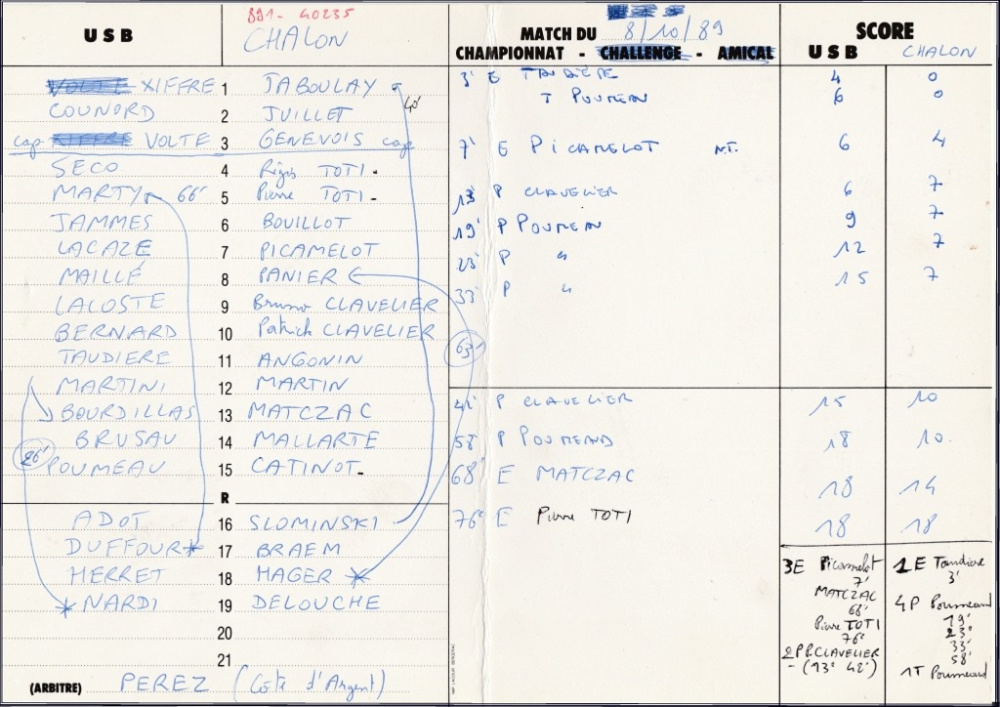 891- 40235
USB CHALON
MATCH DU 8/10/89
CHAMPIONNAT - CHALLENGE - AMICAL
SCORE
USB CHALON
XIFFRE 1 JABOULAY 40'
COUNORD 2 JUILLET
cap VOLTE 3 GENEVOIS cap
SECO 4 Régis TOTI -
MARTY 66' 5 Pierre TOTI -
JAMMES 6 BOUILLOT
LACAZE 7 PICAMELOT
MAILLÉ 8 PANIER
LACOSTE 9 Bruno CLAVELIER
BERNARD 10 Patrick CLAVELIER
63'
TAUDIERE 11 ANGONIN
MARTINI 12 MARTIN
BOURDILLAS 13 MATCZAC
BRUSAU 14 MALLARTE
26' POUMEAU 15 CATINOT -
R
ADOT 16 SLOMINSKI
DUFFOUR 17 BRAEM
HERRET 18 HAGER
NARDI 19 DELOUCHE
20
21
(ARBITRE) PEREZ (Côte d'Argent)
3' E TAUDIERE 4 0
T POUMEAU 6 0
7' E PICAMELOT N.T. 6 4
13' P CLAVELIER 6 7
19' P POUMEAU 9 7
23' P " 12 7
33' P " 15 7
42' P CLAVELIER 15 10
58' P POUMEAUD 18 10.
68' E MATCZAC 18 14
76' E Pierre TOTI 18 18
3E Picamelot
7'
MATCZAC
68'
Pierre TOTI
76'
2P P.CLAVELIER
- (13' 42')
1E Taudiere
3'
4P Poumeaud
19'
23'
33'
58'
1T Poumeaud